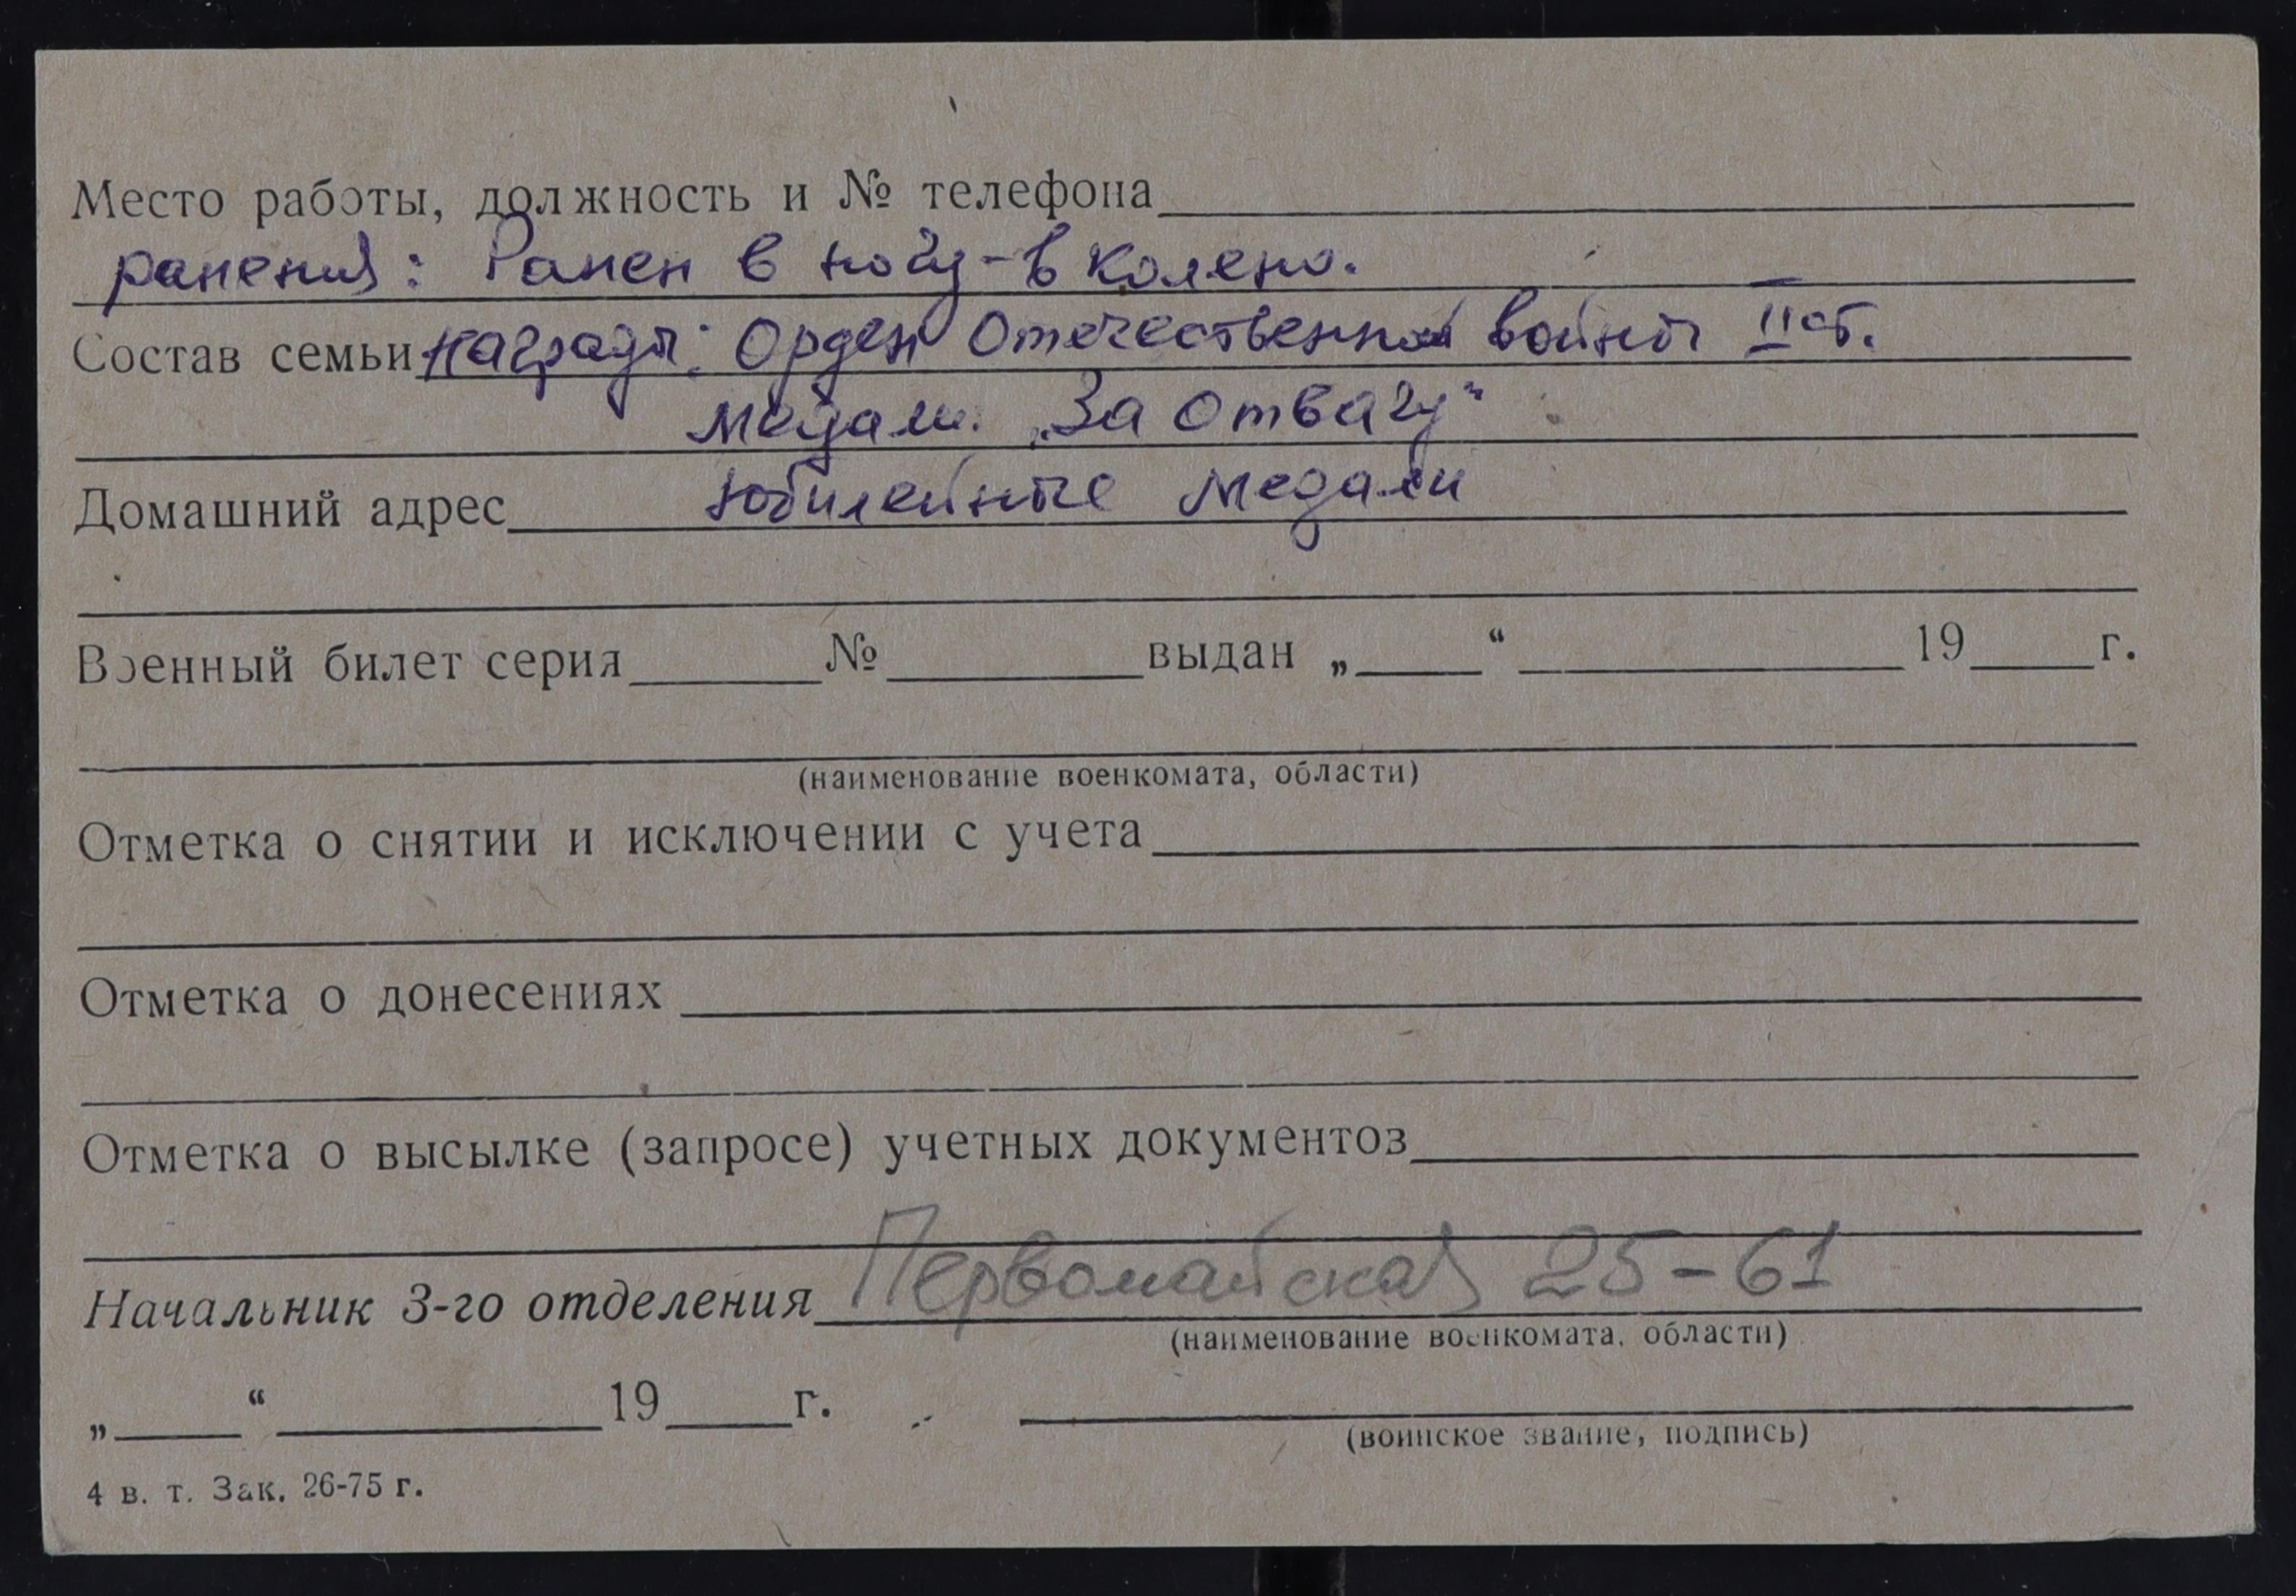 Место работы, должность и № телефона
ранения: Ранен в ногу - в колено.
Состав семьи награды: Орден Отечественной войны II ст.
медали. „За отвагу“
Домашний адрес юбилейные медали
Военный билет серия № выдан „ “ 19 г.
(наименование военкомата, области)
Отметка о снятии и исключении с учета
Отметка о донесениях
Отметка о высылке (запросе) учетных документов
Начальник 3-го отделения Первомайская 25-61
(наименование военкомата, области)
„ “ 19 г.
(воинское звание, подпись)
4 в. т. Зак. 26-75 г.